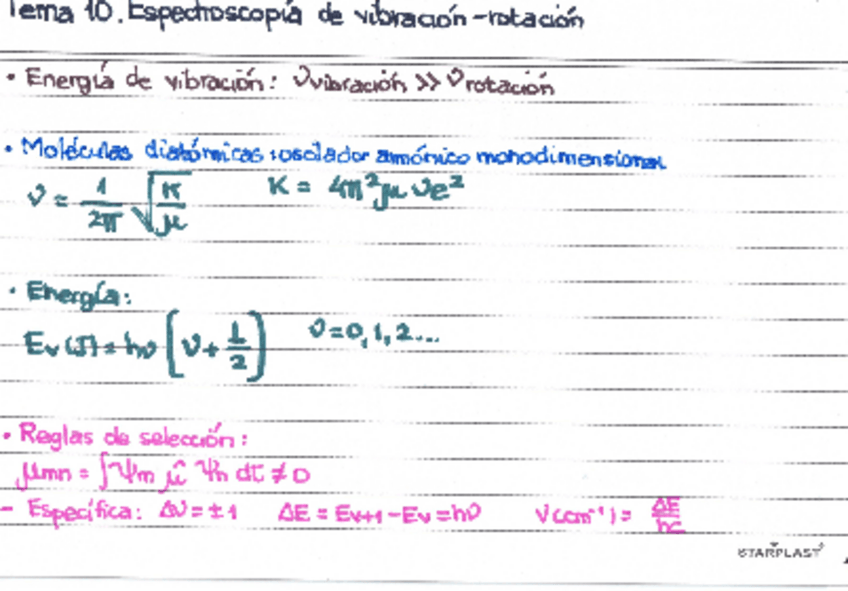 Tema 10. Espectroscopía de vibración-rotación
• Energía de vibración: νvibración >> νrotación
• Moléculas diatómicas: oscilador armónico monodimensional
ν = 1/2π √(K/μ) K = 4π²μνe²
• Energía:
Ev (J) = hν [v + 1/2] v = 0, 1, 2...
• Reglas de selección:
μmn = ∫Ψm μ̂ Ψn dτ ≠ 0
- Específica: Δv = ±1 ΔE = Ev+1 - Ev = hν ν(cm⁻¹) = ΔE/hc
STARPLAST